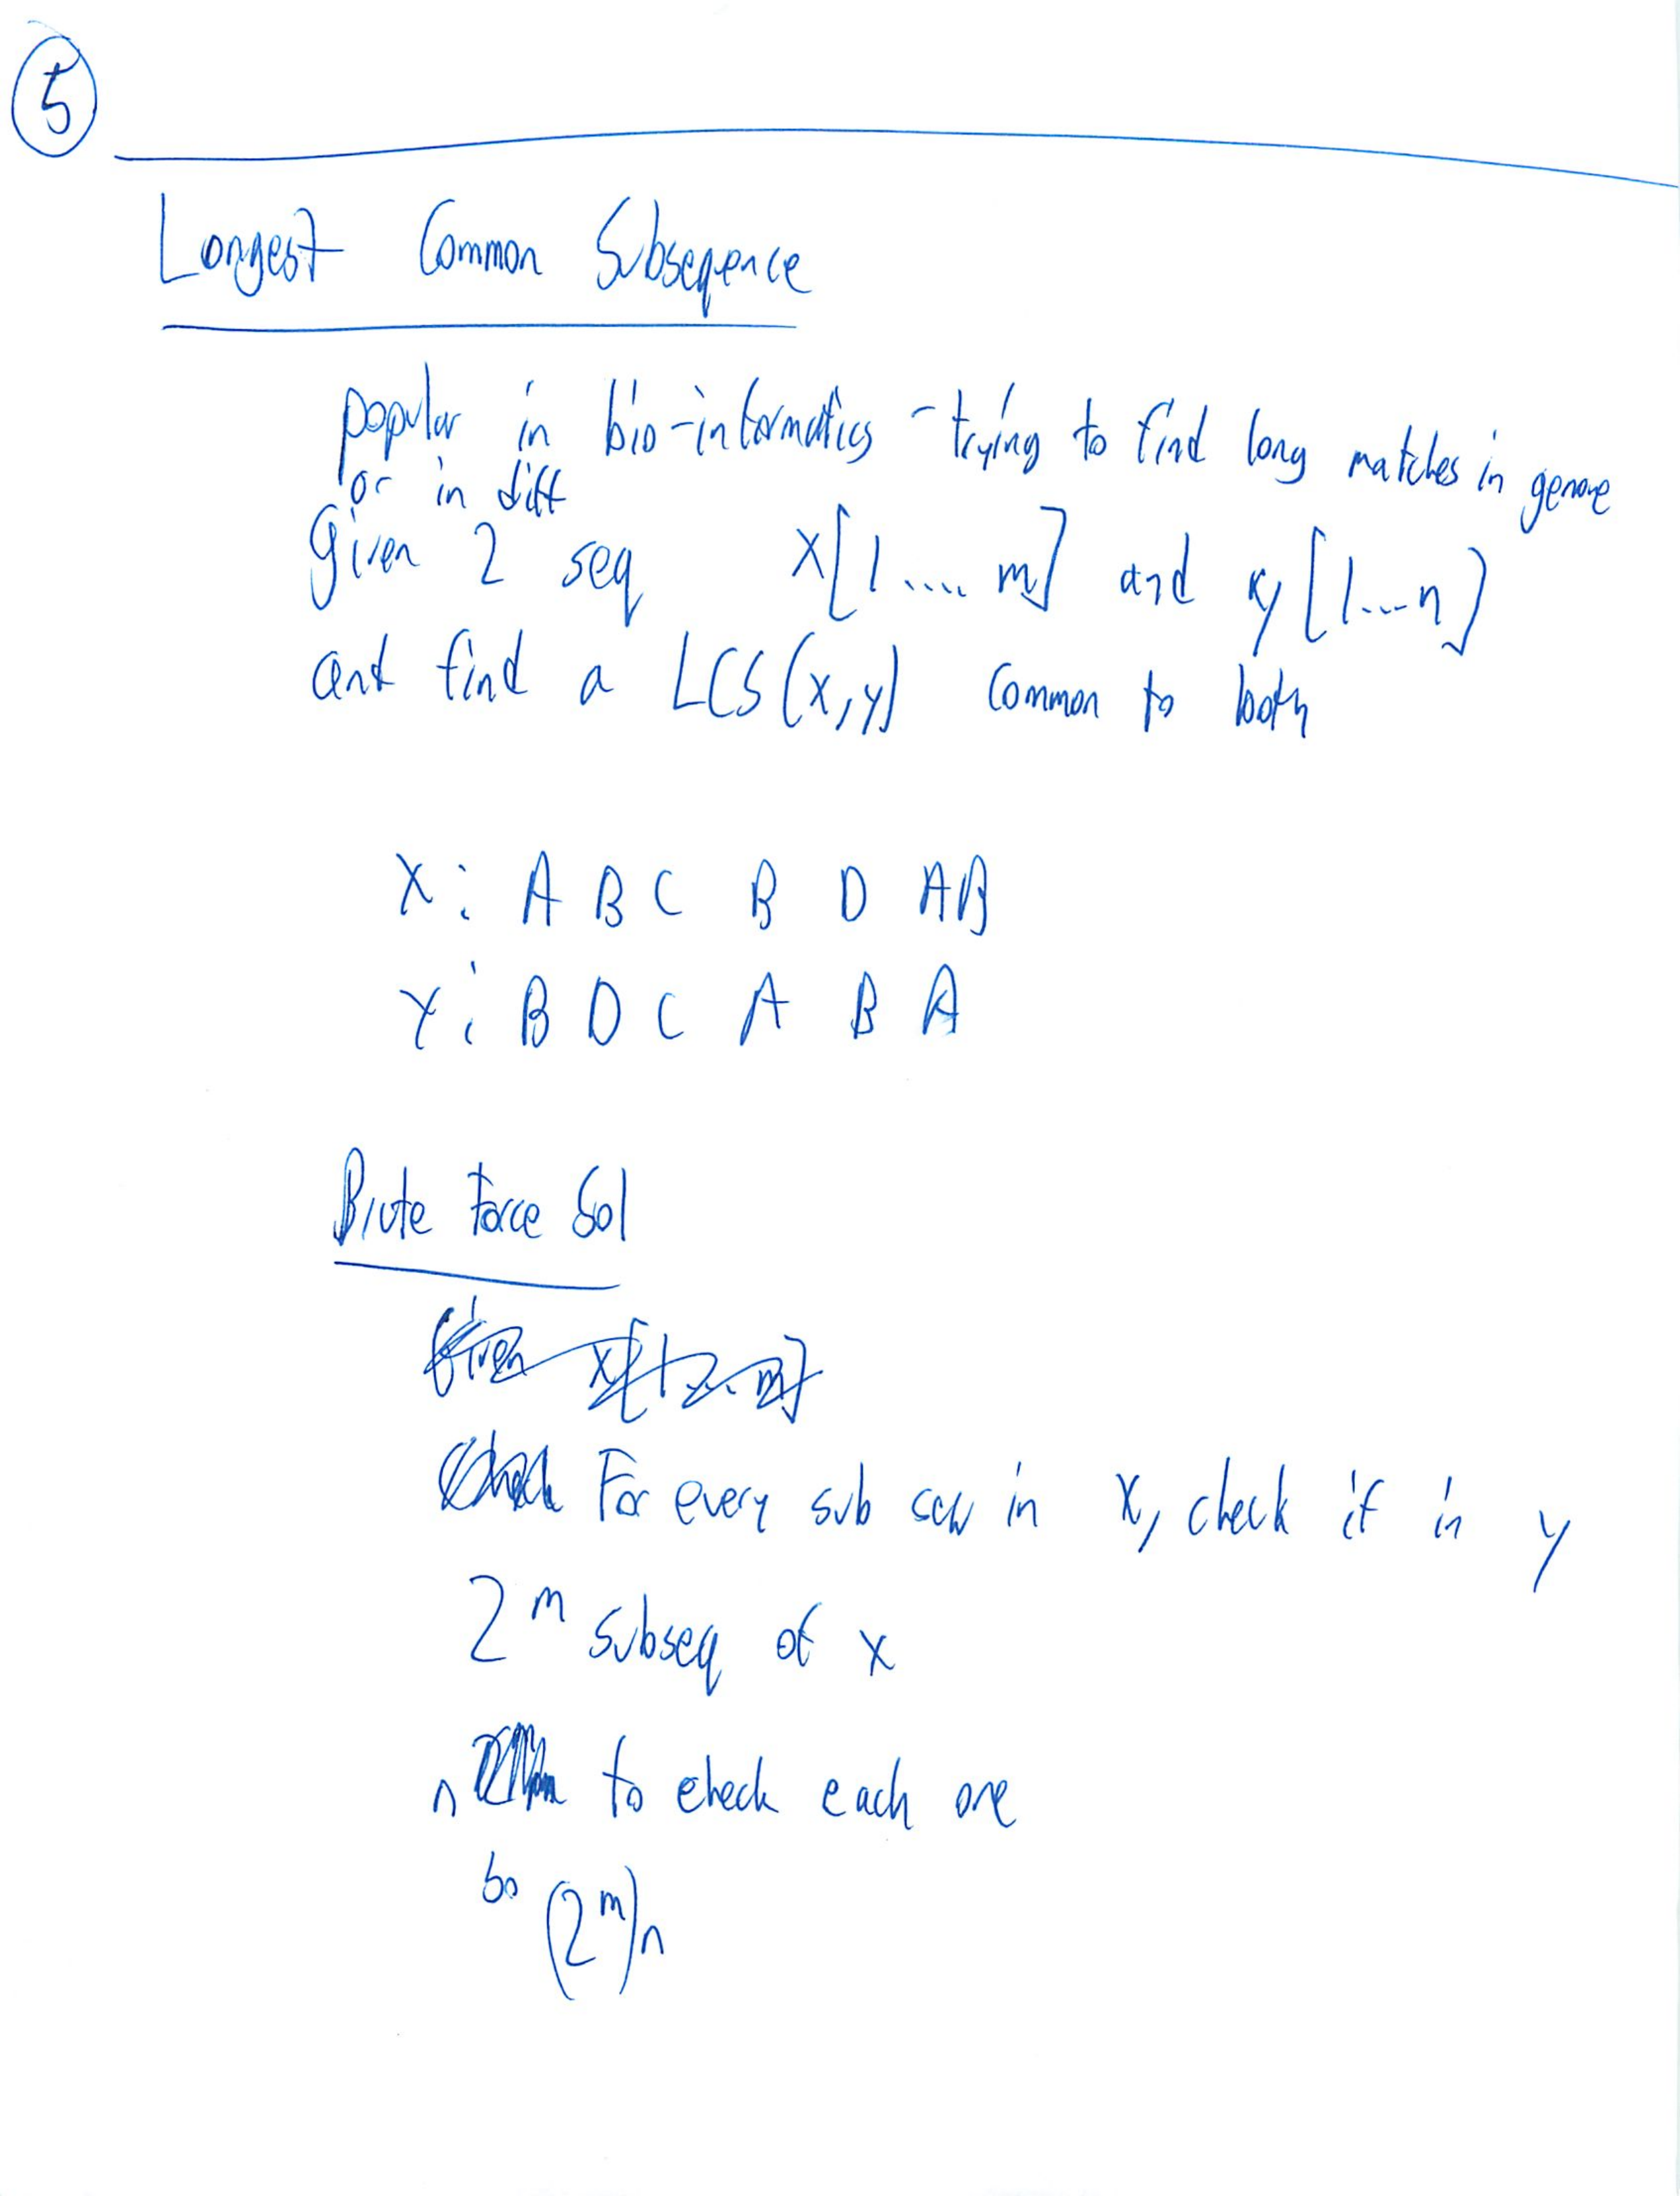 5
Longest Common Subsequence
popular in bio-informatics - trying to find long matches in genome
or in diff
Given 2 seq x[1....m] and y[1...n]
and find a LCS(x,y) common to both
X: A B C B D A B
Y: B D C A B A
Brute Force Sol
Given x[1...m]
Check For every sub seq in X, check if in y
2^m subseq of x
n to check each one
so (2^m)n